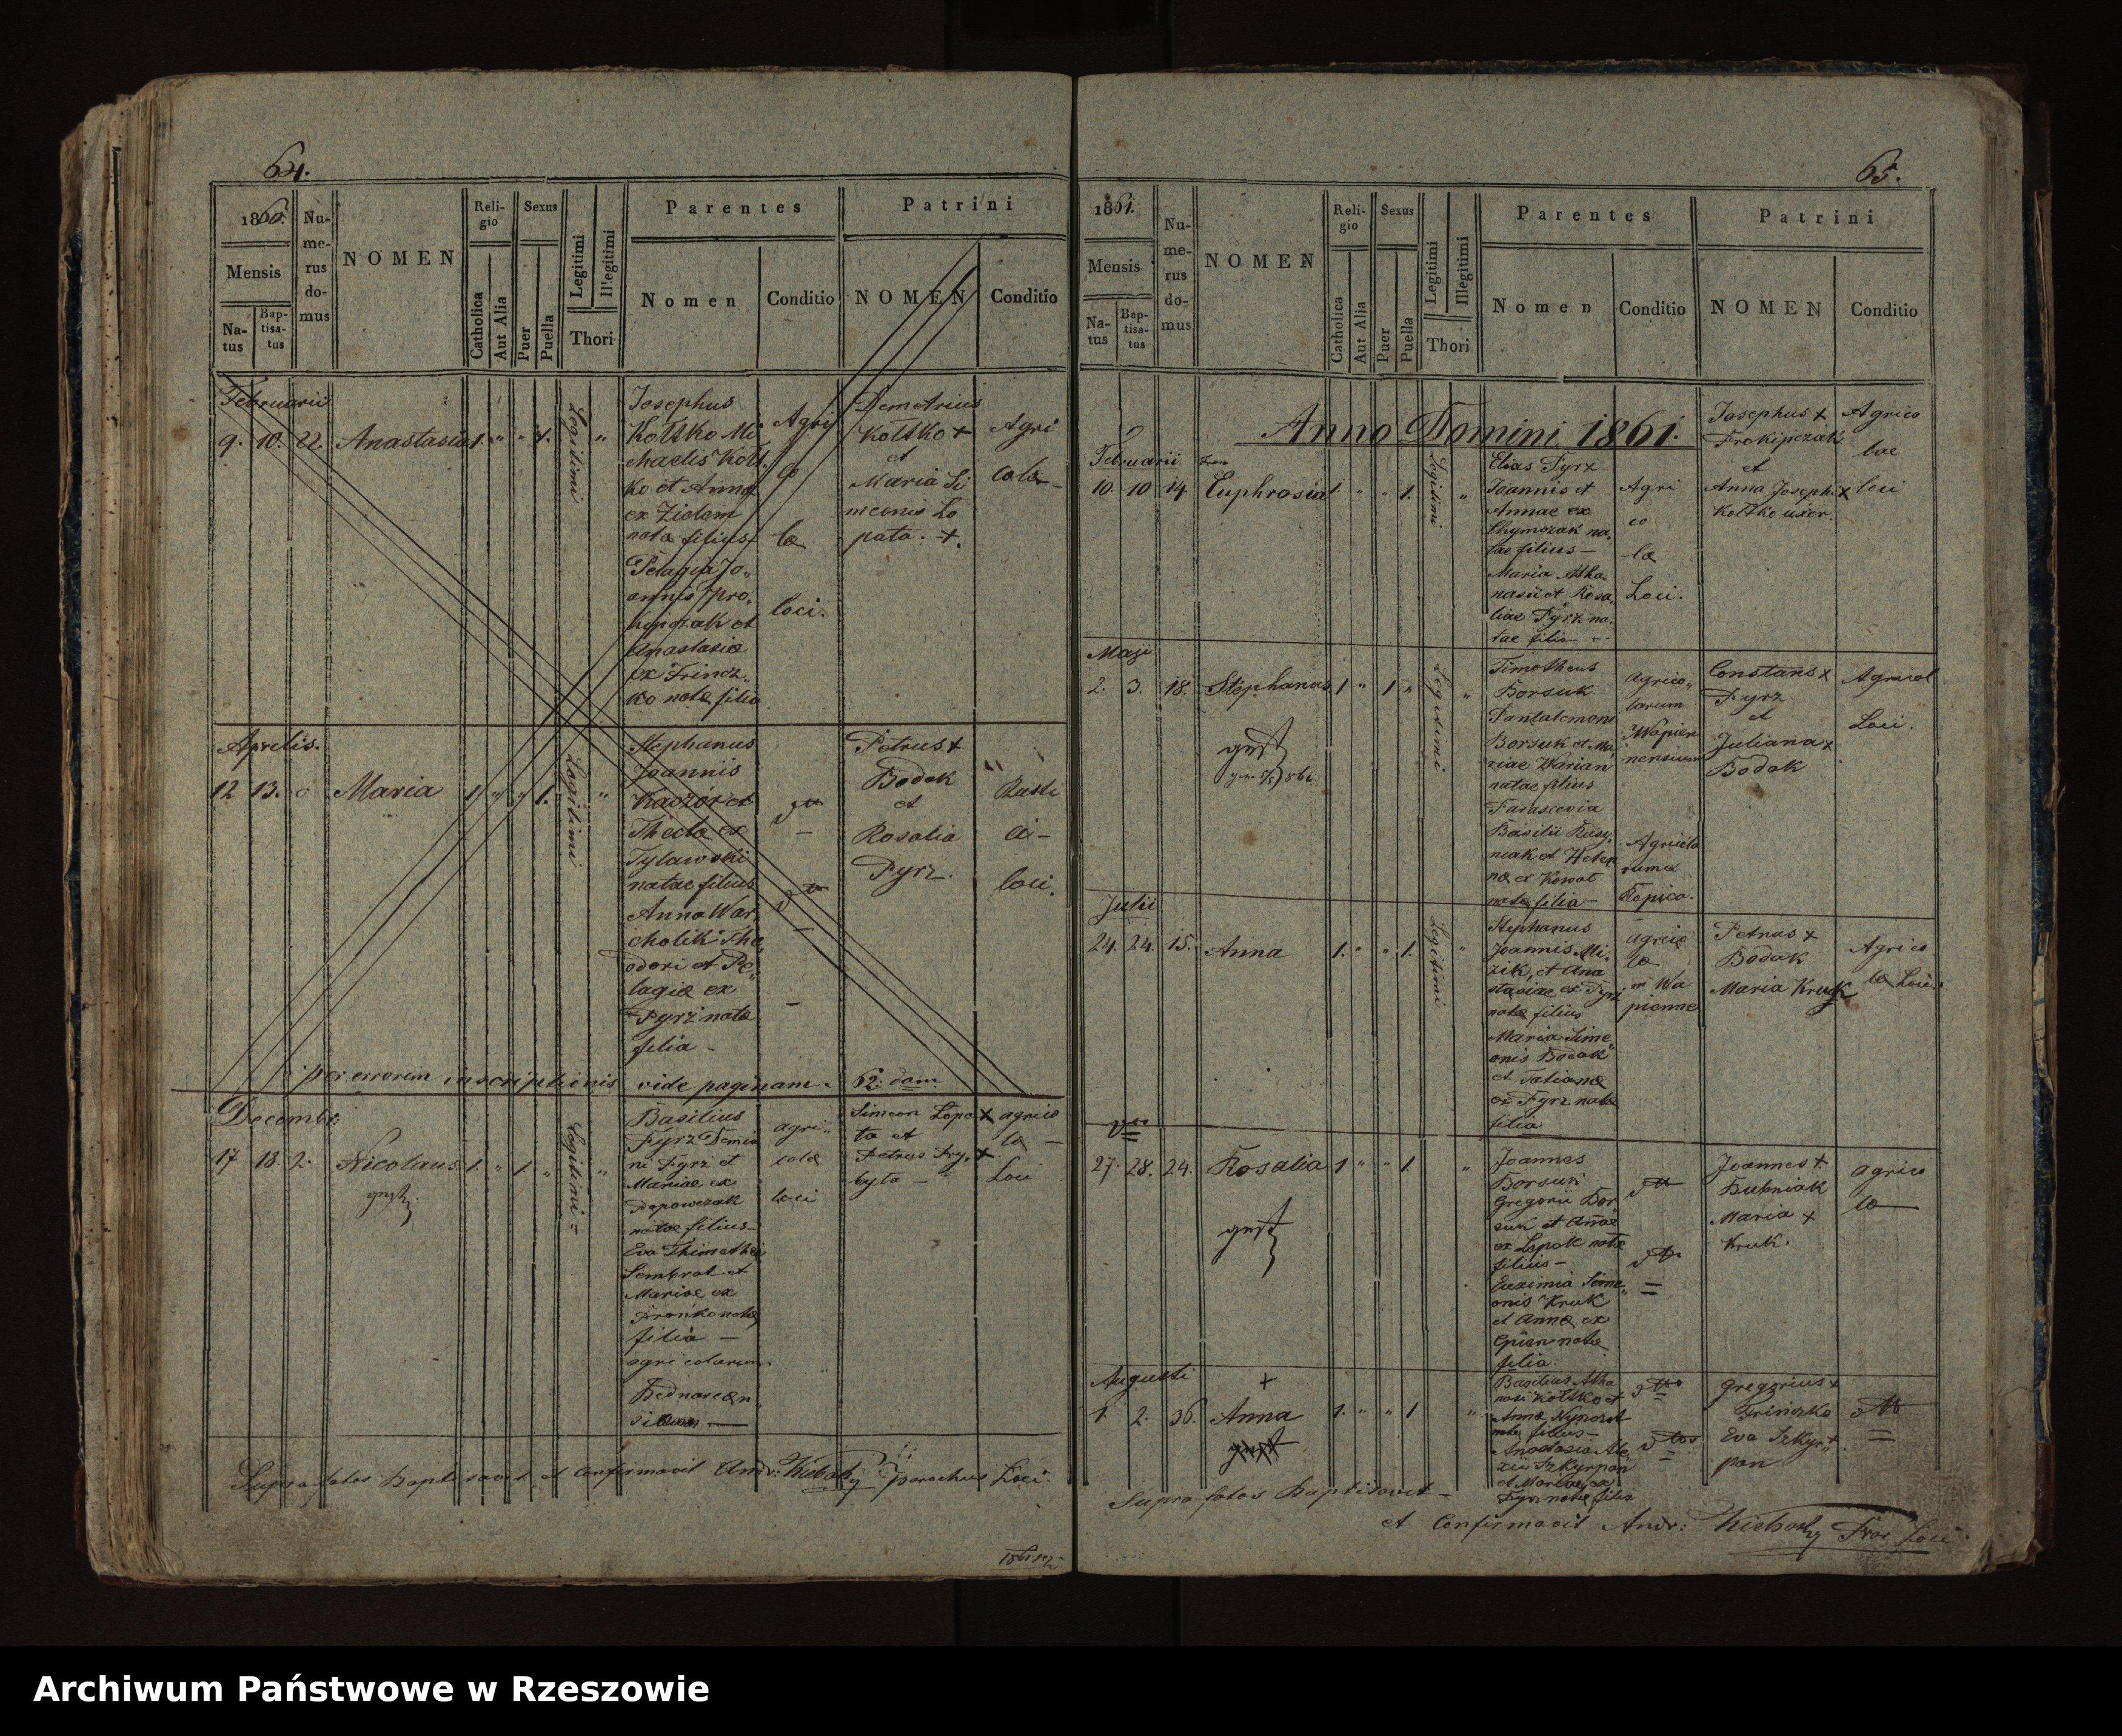 64.
1860.
Mensis
Na-
tus
Bap-
tisa-
tus
Nu-
me-
rus
do-
mus
NOMEN
Reli-
gio
Catholica
Aut Alia
Sexus
Puer
Puella
Legitimi
Illegitimi
Thori
Parentes
Nomen
Conditio
Patrini
NOMEN
Conditio
Februarii
9. 10. 22. Anastasia 1. " " 1.
Legitimi
"
Josephus
Koltko Mi
chaelis Kolt
ko et Anna
ex Zielem
nata filius
Pelagia Jo„
annis Pro„
kipczak et
Anastasia
ex Frincz„
ko nata filia
Agri
co
la
loci.
Demetrius
Koltko +
et
Maria Si
meonis Lo
pata. +.
Agri
cola
Aprelis.
12 13. Maria 1 " " 1.
Legitimi
"
Stephanus
Joannis
Kaczor et
Thecla ex
Tylawski
natae filius
Anna War
cholik The
odori et Pe
lagia ex
Pyrz nata
filia -
Petrus +
Bodak
et
Rosalia
Pyrz.
Rusti
ci -
loci.
per errorem inscriptionis vide paginam 62. dam
Decembr.
17 18 2. Nicolaus 1. " 1. "
Legitimi -
"
Basilius
Pyrz Demia
ni Pyrz et
Mariae ex
Popowczak
natae filius -
Eva Thimothei
Sembrat et
Mariae ex
Fronko nata
filia -
agricolarum
Bednarcan
agri„
cola
loci
Simeon Lopa +
ta et
Petrus Pry„ +
byta -
agrico
la -
Loci
Supra fatos Baptisavit et Confirmavit Andr: parochus Loci.
65.
1861.
Mensis
Na-
tus
Bap-
tisa-
tus
Nu-
me-
rus
do-
mus
NOMEN
Reli-
gio
Catholica
Aut Alia
Sexus
Puer
Puella
Legitimi
Illegitimi
Thori
Parentes
Nomen
Conditio
Patrini
NOMEN
Conditio
Anno Domini 1861.
Februarii
10. 10 14. Euphrosia 1. " " 1.
Legitimi
"
Elias Pyrz
Joannis et
Annae ex
Chymczak na„
tae filius -
Maria Atha„
nasii et Rosa„
liae Pyrz na„
tae filia -
Agri
co
la
Loci.
Josephus +
Prokipczak
et
Anna Joseph. +
Koltko uxor.
Agrico
lae
loci
Maji
2. 3. 18. Stephanus 1 " 1 "
Legitimi
"
Timotheus
Borsuk
Pantalemoni
Borsuk et Ma
riae Harian
natae filius
Parascevia
Basilii Rusy„
niak et Hele
na ex Kowal
nata filia -
agrico„
larum
Wapien
nensium
Agricola
rum ex
Ropica.
Constans +
Pyrz
et
Juliana +
Bodak
Agricol
Loci.
Julii
24. 24. 15. Anna 1. " " 1.
Legitimi
"
Stephanus
Joannis Mi„
zik, et Ana
stasiae ex Pyrz
nata filius
Maria Sime„
onis Bodak
et Tatiana
ex Pyrz nata
filia
agrico
la
in Wa
pienne
Petrus +
Bodak
Maria Kruk
Agrico
la Loci.
27. 28. 24. Rosalia 1 " " 1
"
Joannes
Borsuk
Gregorii Bor
suk et Annae
ex Lopok nata
filius -
Euximia Sime„
onis Kruk
et Anna ex
nata
filia.
Joannes +
Bubniak
Maria +
Kruk.
agrico
la
Augusti
+
1. 2. 36. Anna 1. " " 1
"
Basilius Atha
nasi Koltko et
Anna
nata filius -
Anastasia Ale
xii Szkyrpan
et Mariae ex
Pyrz nata filia
Gregorius +
Frinczko
Eva Szkyr +
pan
Supra fatos Baptisavit -
et Confirmavit Andr: Par. Loci
Archiwum Państwowe w Rzeszowie